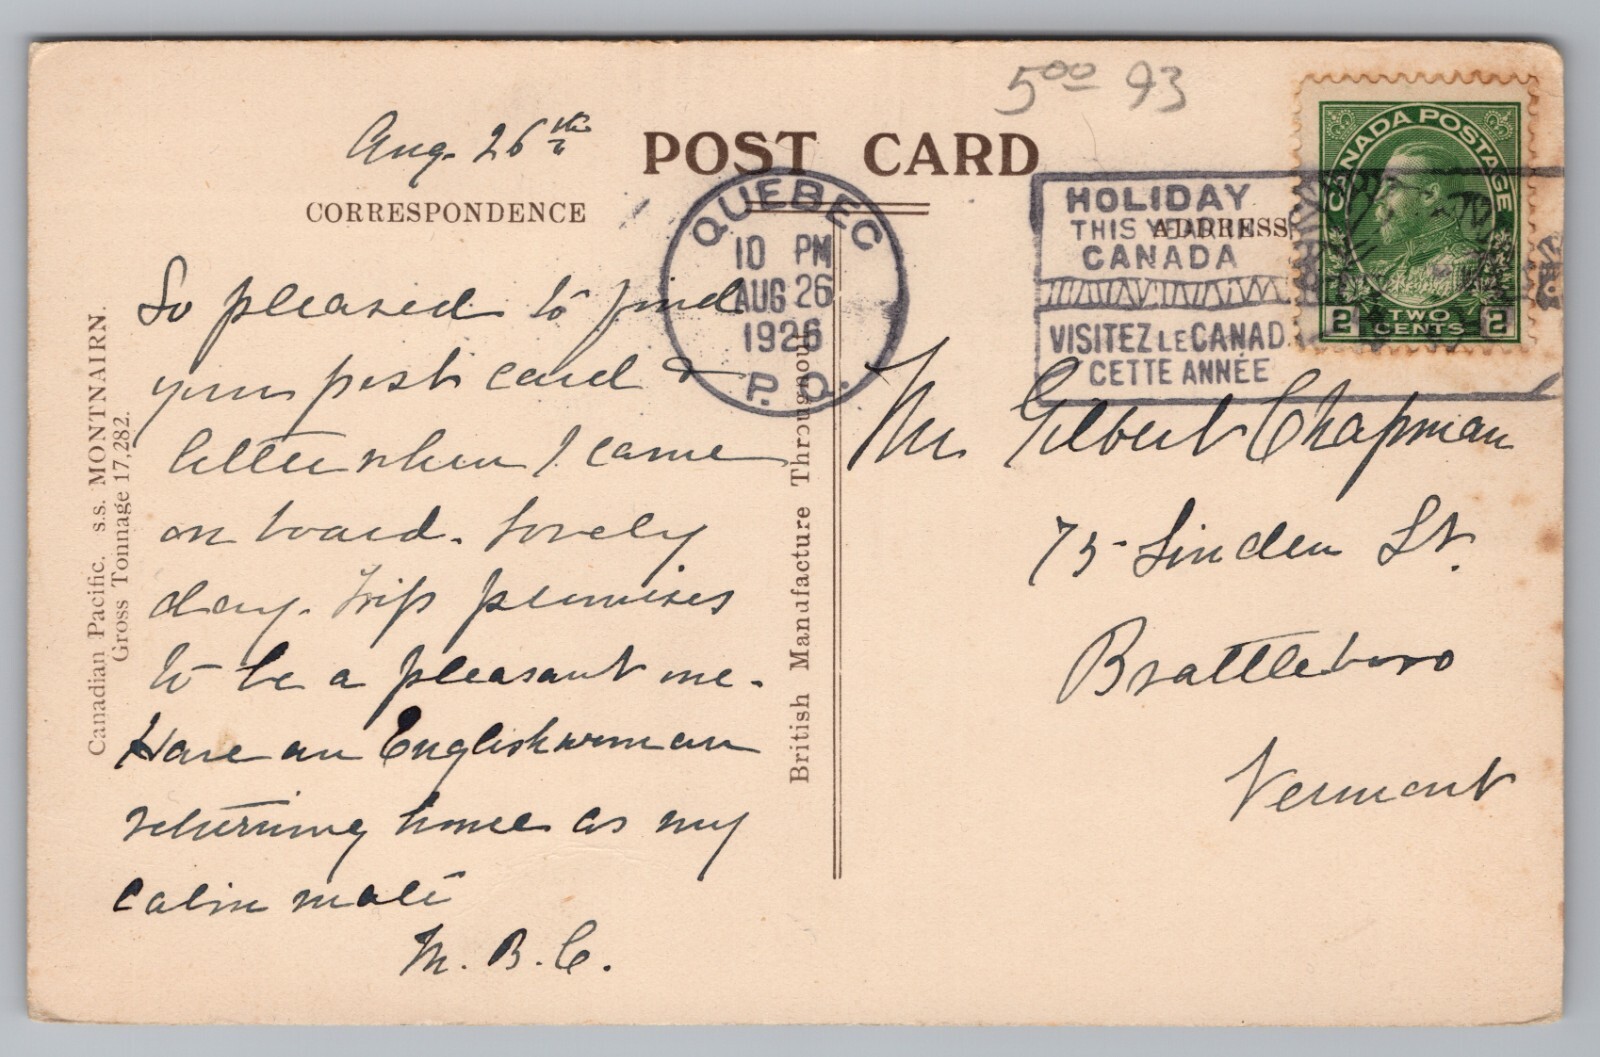 5 00 93
Aug. 26th
POST CARD
CORRESPONDENCE
ADDRESS
QUEBEC
10 PM
AUG 26
1926
P.Q.
HOLIDAY
THIS YEAR IN
CANADA
VISITEZ LE CANADA
CETTE ANNÉE
CANADA POSTAGE
2 TWO CENTS 2
Canadian Pacific. s.s. MONTNAIRN.
Gross Tonnage 17,282.
So pleased to find
your post card &
letter when I came
on board. Lovely
day. Trip promises
to be a pleasant one.
Have an Englishwoman
returning home as my
cabin mate
M. B. C.
British Manufacture Throughout
Mr. Gilbert Chapman
75 Linden St.
Brattleboro
Vermont